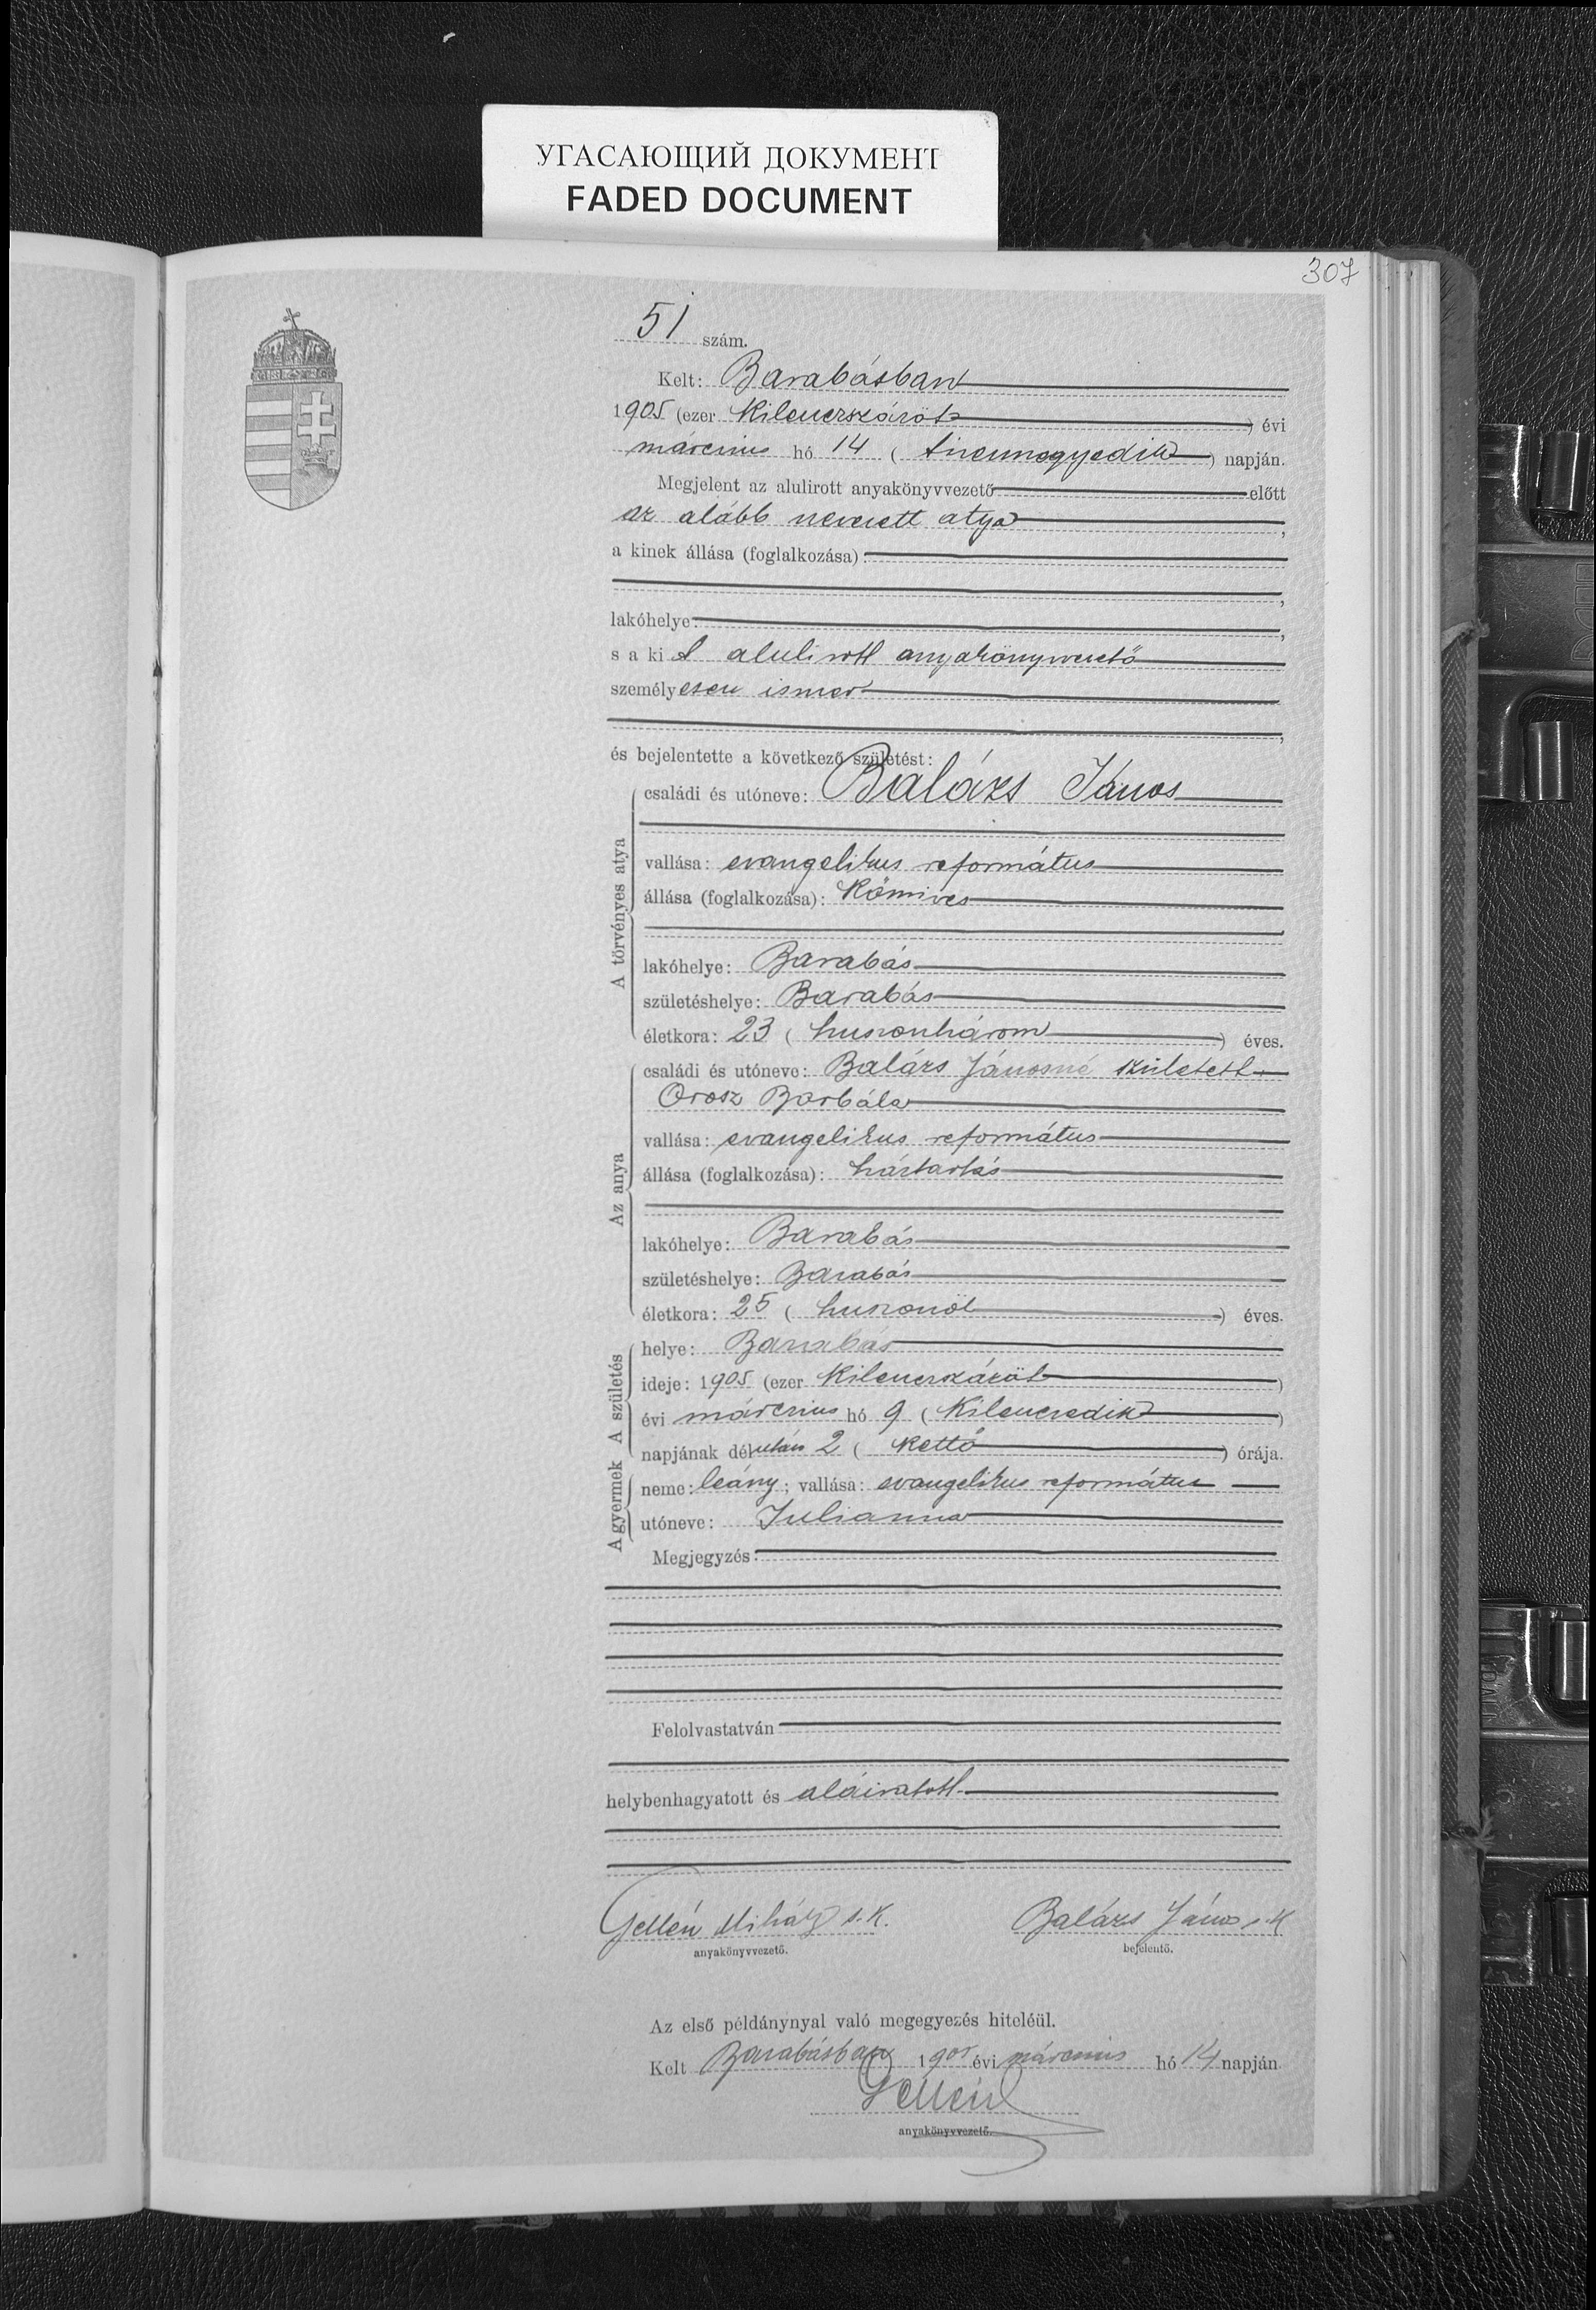 УГАСАЮЩИЙ ДОКУМЕНТ
FADED DOCUMENT
307
51 szám.
Kelt: Barabásban
1905 (ezer kilenczszázöt) évi
márczius hó 14 (tizennegyedik) napján.
Megjelent az alulirott anyakönyvvezető előtt
az alább nevezett atya,
a kinek állása (foglalkozása):
,
lakóhelye: ,
s a kit alulirott anyakönyvvezető
személyesen ismer
,
és bejelentette a következő születést:
A törvényes atya
családi és utóneve: Balázs János
vallása: evangelikus református
állása (foglalkozása): Kőmives
lakóhelye: Barabás
születéshelye: Barabás
életkora: 23 (huszonhárom) éves.
Az anya
családi és utóneve: Balázs Jánosné született
Orosz Borbála
vallása: evangelikus református
állása (foglalkozása): háztartás
lakóhelye: Barabás
születéshelye: Barabás
életkora: 25 (huszonöt) éves.
A születés
helye: Barabás
ideje: 1905 (ezer kilenczszázöt)
évi márczius hó 9 (kilenczedik)
napjának délután 2 (kettő) órája.
A gyermek
neme: leány; vallása: evangelikus református
utóneve: Julianna
Megjegyzés:
Felolvastatván
helybenhagyatott és aláiratott
Gellén Mihály s. k. Balázs János s. k.
anyakönyvvezető. bejelentő.
Az első példánynyal való megegyezés hiteléül.
Kelt Barabásban 1905 évi márczius hó 14 napján.
Gellén
anyakönyvvezető.